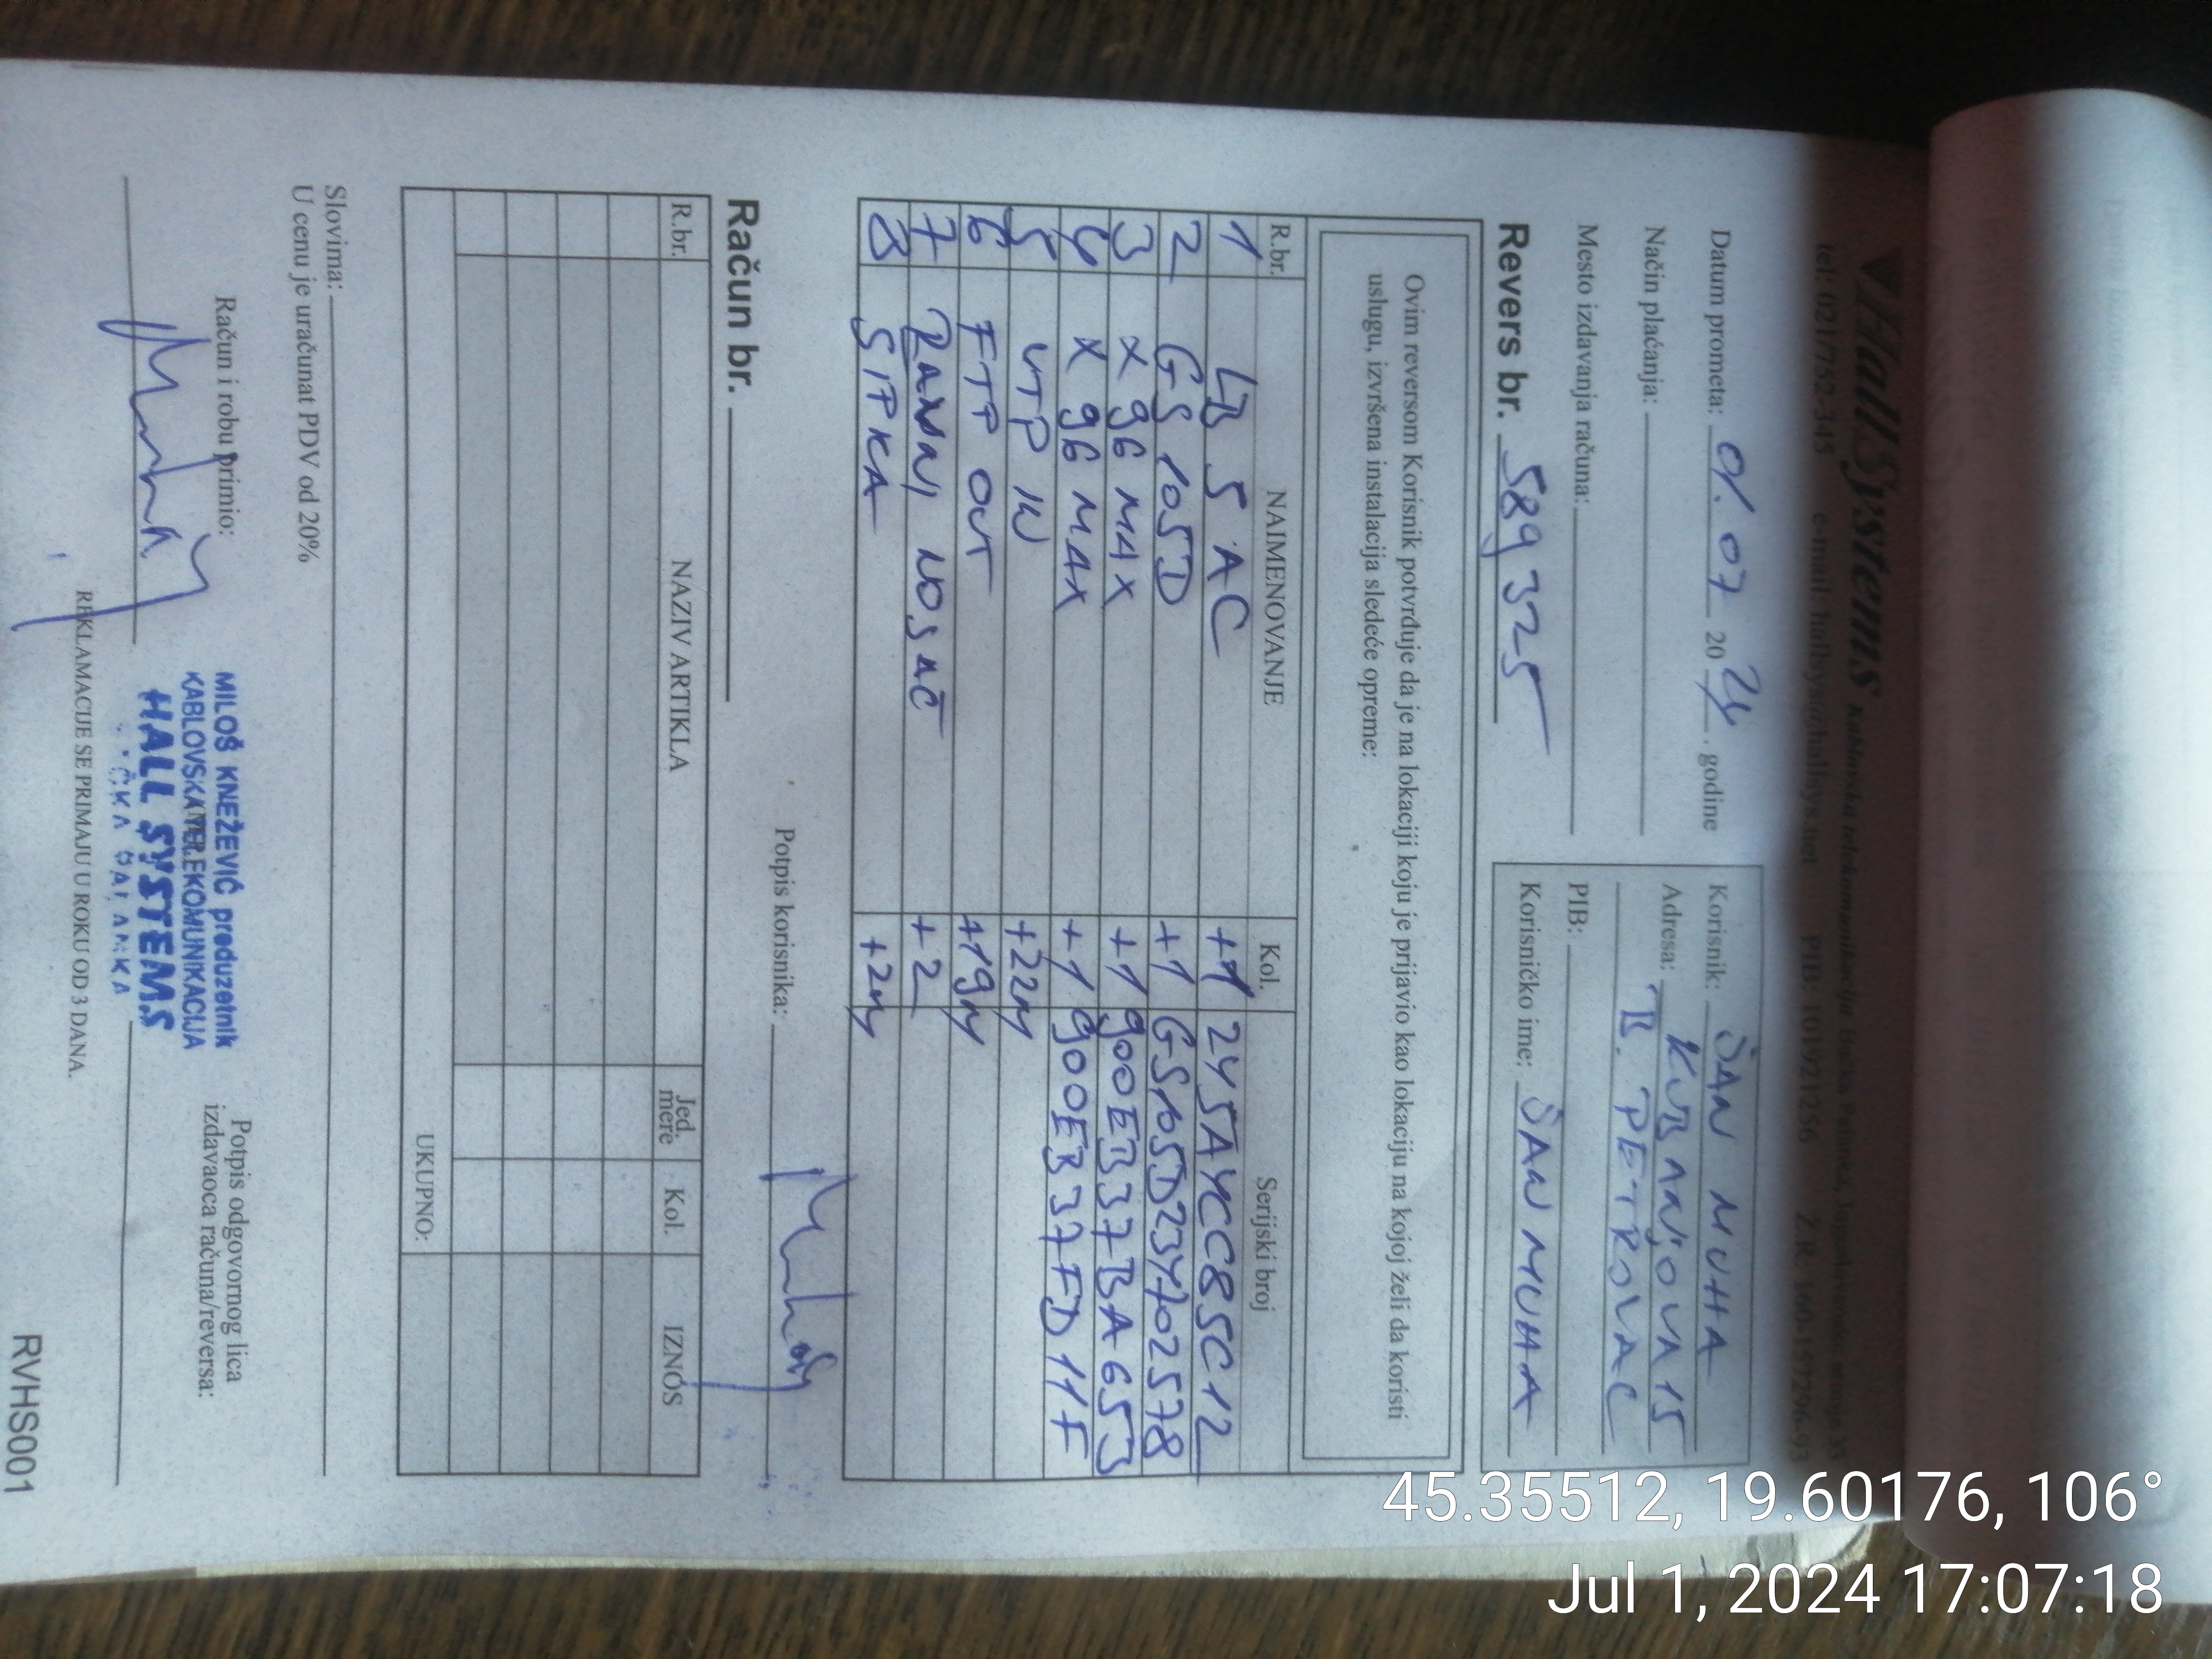 HallSystems
tel: 021/752-345 e-mail: hallsys@hallsys.net PIB: 101921256 Ž.R. 160-157296-93
Datum prometa: 01.07 2024. godine
Način plaćanja:
Mesto izdavanja računa:
Revers br. 589325
Korisnik: ŠAN MUHA
Adresa: KUBANJOVA 15
B. PETROVAC
PIB:
Korisničko ime: ŠAN MUHA
Ovim reversom Korisnik potvrđuje da je na lokaciji koju je prijavio kao lokaciju na kojoj želi da koristi
uslugu, izvršena instalacija sledeće opreme:
R.br. NAIMENOVANJE Kol. Serijski broj
1 LB 5 AC +1 245A4CC85C12
2 GS 105D +1 GS105D234702578
3 X 96 MAX +1 900EB37BA653
4 X 96 MAX +1 900EB37FD11F
5 UTP IN +22m
6 FTP OUT +19m
7 RAVNI NOSAČ +2
8 SIPKA +2m
Potpis korisnika:
Račun br.
R.br. NAZIV ARTIKLA Jed. mere Kol. IZNOS
UKUPNO:
Slovima:
U cenu je uračunat PDV od 20%
Račun i robu primio:
MILOŠ KNEŽEVIĆ preduzetnik
KABLOVSKA TELEKOMUNIKACIJA
HALL SYSTEMS
Potpis odgovornog lica
izdavaoca računa/reversa:
REKLAMACIJE SE PRIMAJU U ROKU OD 3 DANA.
RVHS001
45.35512, 19.60176, 106°
Jul 1, 2024 17:07:18